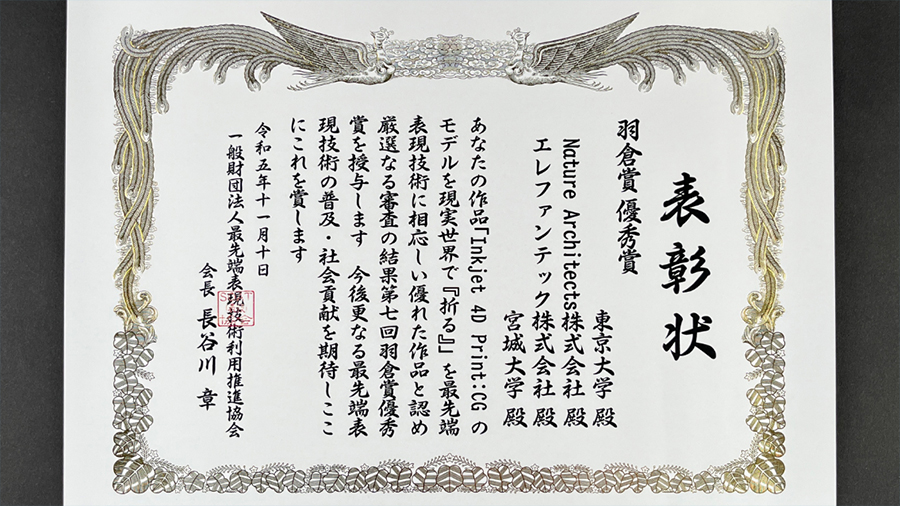 表彰状
羽倉賞 優秀賞
東京大学 殿
Nature Architects株式会社 殿
エレファンテック株式会社 殿
宮城大学 殿
あなたの作品「Inkjet 4D Print:CG の
モデルを現実世界で『折る』」を最先端
表現技術に相応しい優れた作品と認め
厳選なる審査の結果第七回羽倉賞優秀
賞を授与します 今後更なる最先端表
現技術の普及・社会貢献を期待しここ
にこれを賞します
令和五年十一月十日
一般財団法人最先端表現技術利用推進協会
会長 長谷川 章